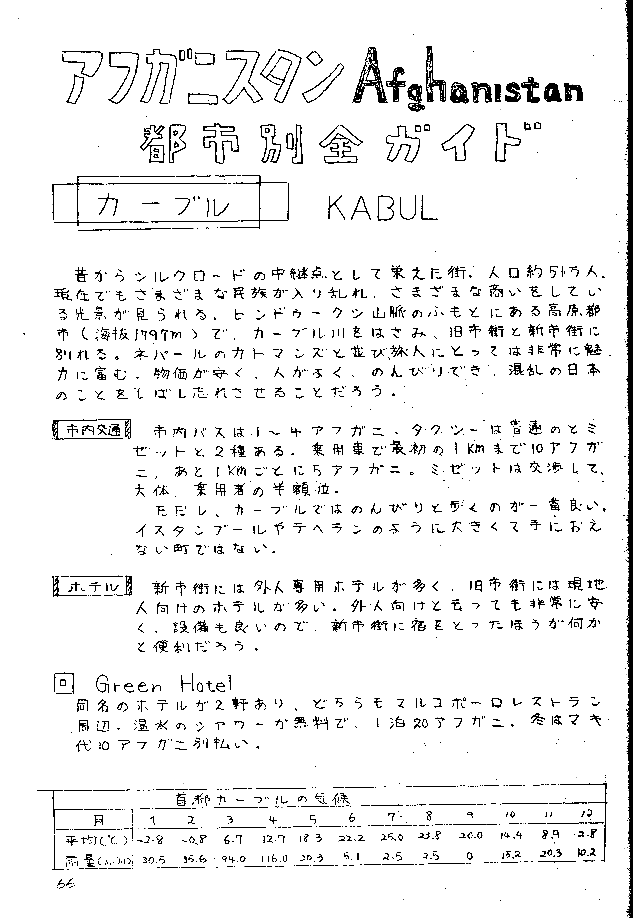 アフガニスタン Afghanistan
都市別全ガイド
カーブル KABUL
昔からシルクロードの中継点として栄えた街、人口約51万人。
現在でもさまざまな民族が入り乱れ、さまざまな商いをしてい
る光景が見られる。ヒンドゥークシ山脈のふもとにある高原都
市(海抜1797m)で、カーブル川をはさみ、旧市街と新市街に
別れる。ネパールのカトマンズと並び旅人にとっては非常に魅
力に富む。物価が安く、人がよく、のんびりでき、混乱の日本
のことをしばし忘れさせることだろう。
市内交通 市内バスは1〜4アフガニ、タクシーは普通のとミ
ゼットと2種ある。乗用車で最初の1Kmまで10アフガ
ニ、あと1Kmごとに5アフガニ。ミゼットは交渉して、
大体、乗用者の半額位。
ただし、カーブルではのんびりと歩くのが一番良い。
イスタンブールやテヘランのように大きくて手におえ
ない町ではない。
ホテル 新市街には外人専用ホテルが多く、旧市街には現地
人向けのホテルが多い。外人向けと云っても非常に安
く、設備も良いので、新市街に宿をとったほうが何か
と便利だろう。
回 Green Hotel
同名のホテルが2軒あり、どちらもマルコポーロレストラン
周辺。温水のシャワーが無料で、1泊20アフガニ。冬はマキ
代10アフガニ別払い。
首都カーブルの気候
月 1 2 3 4 5 6 7 8 9 10 11 12
平均(℃) -2.8 -0.8 6.7 12.7 18.3 22.2 25.0 23.8 20.0 14.4 8.9 2.8
雨量 30.5 35.6 94.0 116.0 20.3 5.1 2.5 2.5 0 15.2 20.3 10.2
66